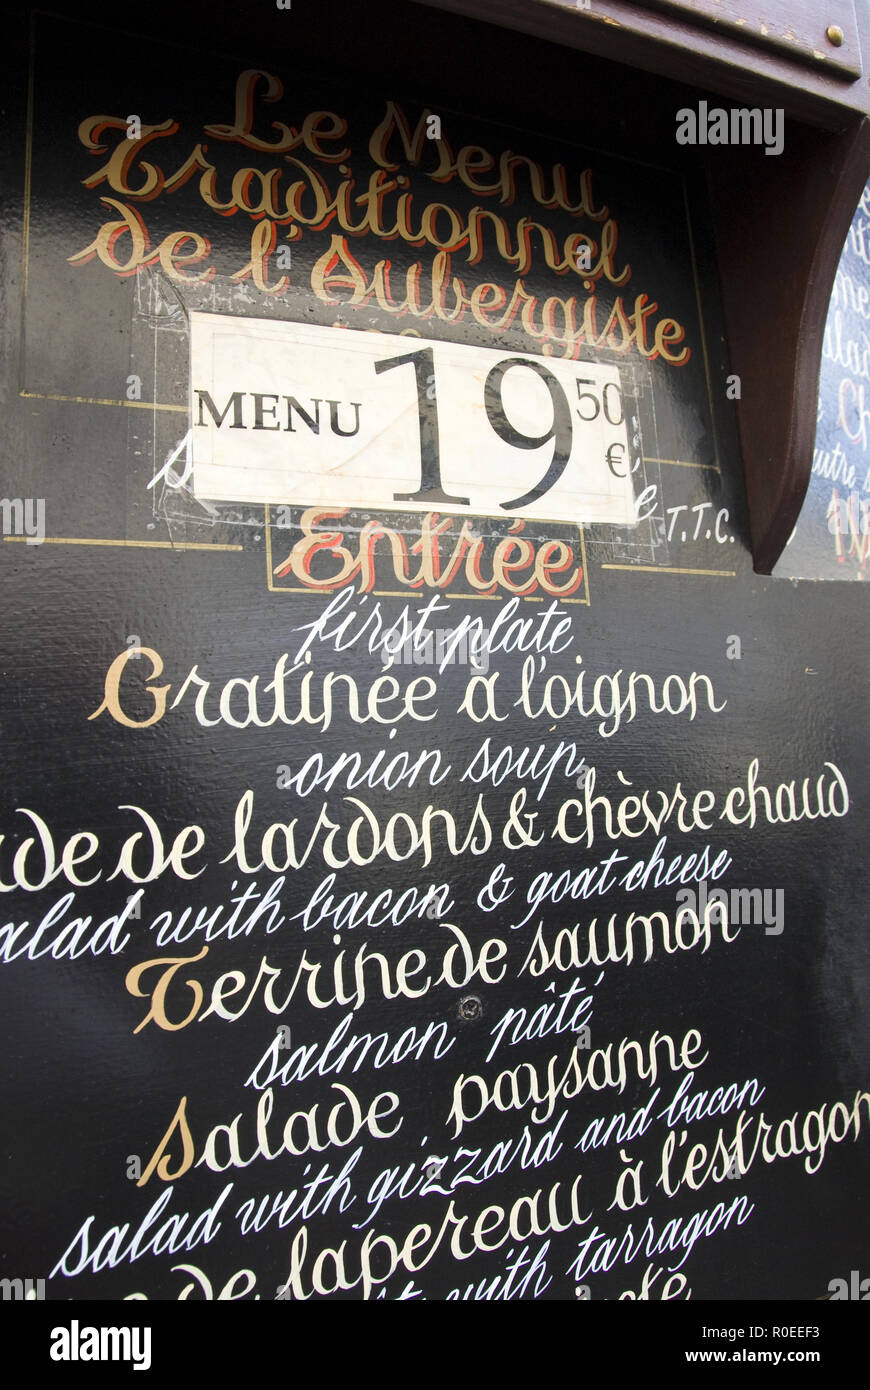 Le Menu
Traditionnel
de l'Aubergiste
MENU 19 50 €
T.T.C.
Entrée
first plate
Gratinée à l'oignon
onion soup
de de lardons & chèvre chaud
alad with bacon & goat cheese
Terrine de saumon
salmon pâté
Salade paysanne
salad with gizzard and bacon
de lapereau à l'estragon
with tarragon
alamy
a
alamy
Image ID: R0EEF3
www.alamy.com